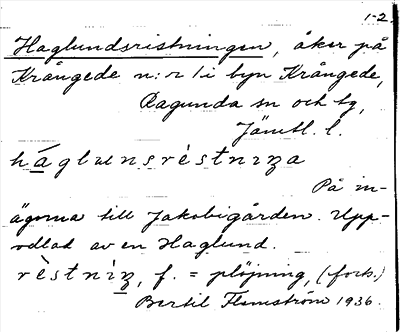 1-2.
Haglundsristningen, åker på
Krångede n:r 1 i byn Krångede,
Ragunda sn och tg,
Jämtl. l.
háglunsrèstnıza
På in-
ägorna till Jakobigården. Upp-
odlad av en Haglund.
rèstnìz, f. = plöjning, (forts.)
Bertil Flemström 1936.